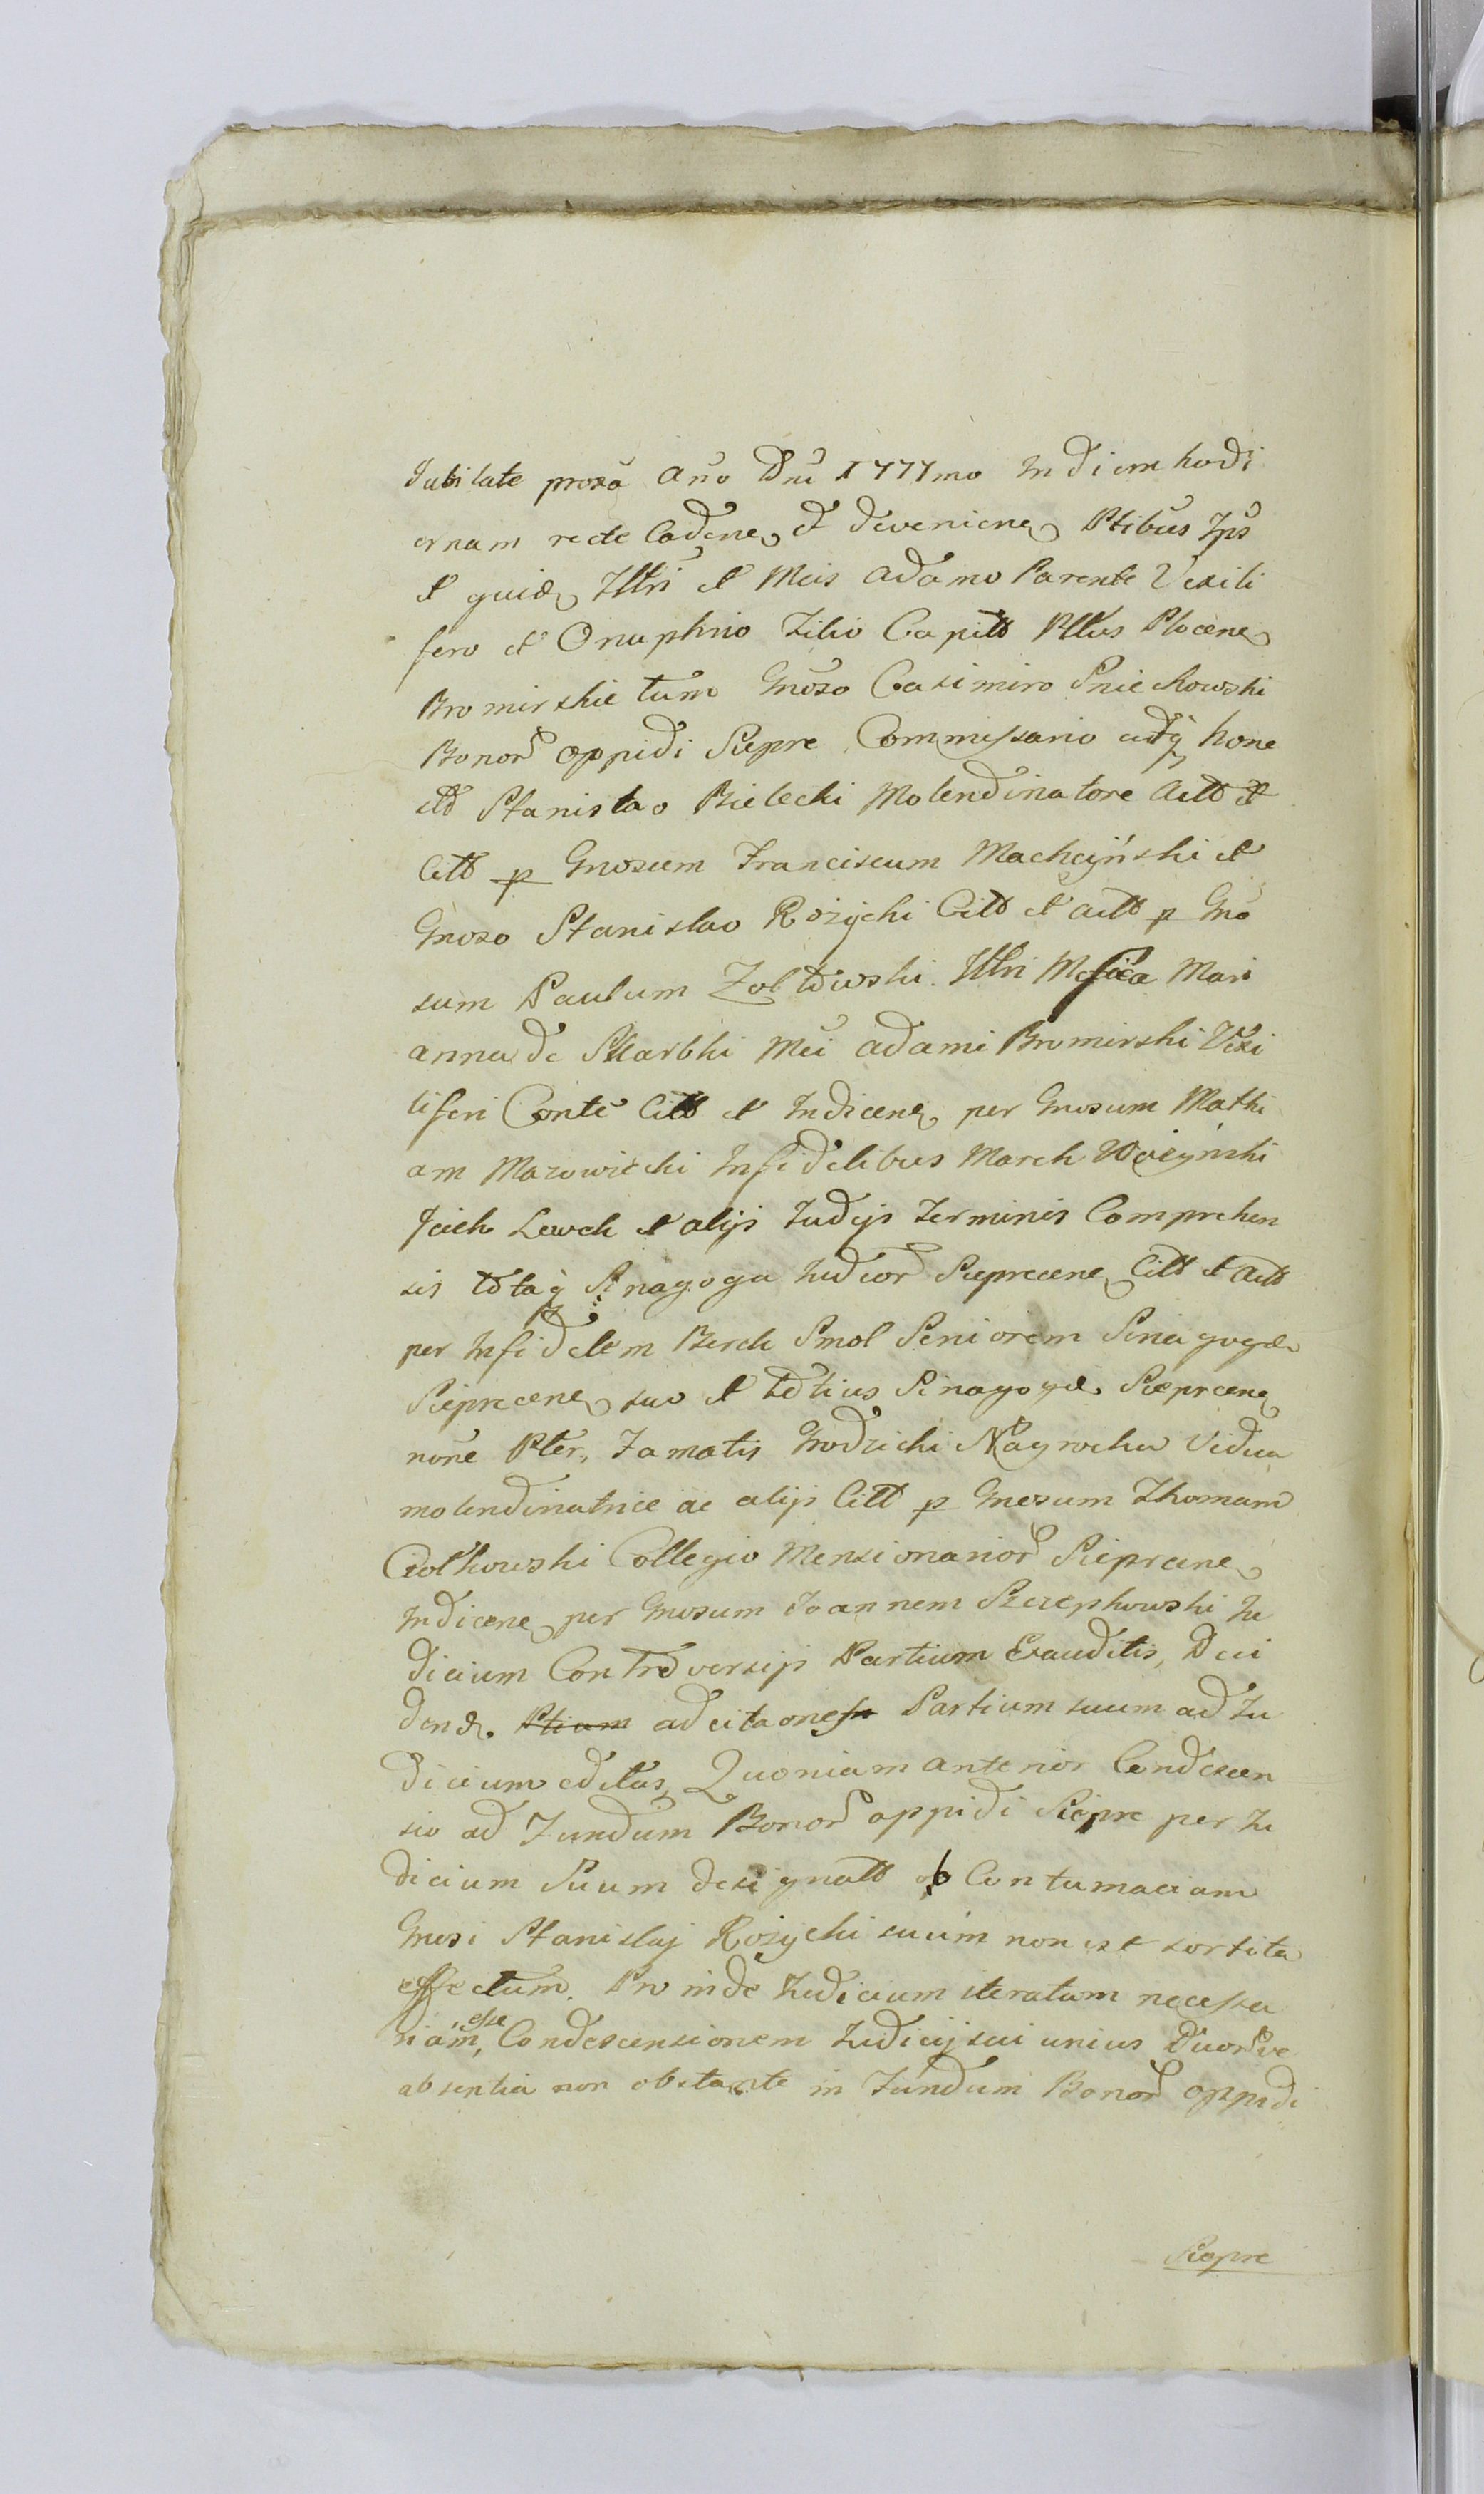 Jubilate proxã Año Dni 1777mo In diem hodi
ernam recte Cadene, et deveniene Ptibus Ips
et quide Illri et Mcis Adamo Parente Vexili
fero et Onuphrio Filio Capitt Pltus Plocene
Bromirskie tum Gnoso Casimiro Sniechowski
Bonor oppidi Sieprc Commissario adq hone
std Stanislao Bielecki Molendinatore Actt et
Citt p Gnosum Franciscum Machcyński et
Gnoso Stanislao Rożycki Citt et actt p Gno
sum Paulum Żółtowski. Illri Mari
anna de Skarbki Mci Adami Bromirski Vexi
liferi Conte Citt et Indicene per Gnosum Mathi
am Mazowiecki Infidelibus March
Jcich Lewek et alijs Judeis Terminis Comprehen
sis totaq Sinagoga Judeor Sieprcene Citt et Actt
per Infidelem Berek Smol Seniorem Sinagogæ
Sieprcene suo et totius Sinagogæ Sieprcene
noñe Pter, Famatis Grodzicki Nagrocka Vidua
molendinatrice ac alijs Citt p Gnosum Thomam
Ciołkowski Collegio Mensionarior Sieprcene
Indicene per Gnosum Joannem Szczepkowski Ju
dicium Controversijs Partium Exauditis, Deci
dend. Ptium ad citaones Partium suum ad Ju
dicium editas, Quoniam anterior Condescen
sio ad Fundum Bonor oppidi Sieprc per Ju
dicium Suum designatt ob Contumaciam
Gnosi Stanislaj Rożycki suum non est sortita
effectum. Proinde Judicium iteratam necessa
riam, esse Condescensionem Judicij sui unius Duorve
absentia non obstante in Fundum Bonor oppidi
Sieprc